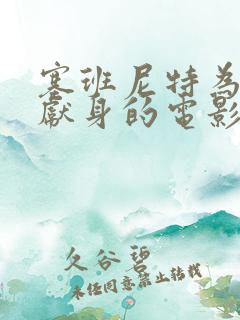 塞班尼特為
獻身的電影
久谷碧
未經同意禁止轉載